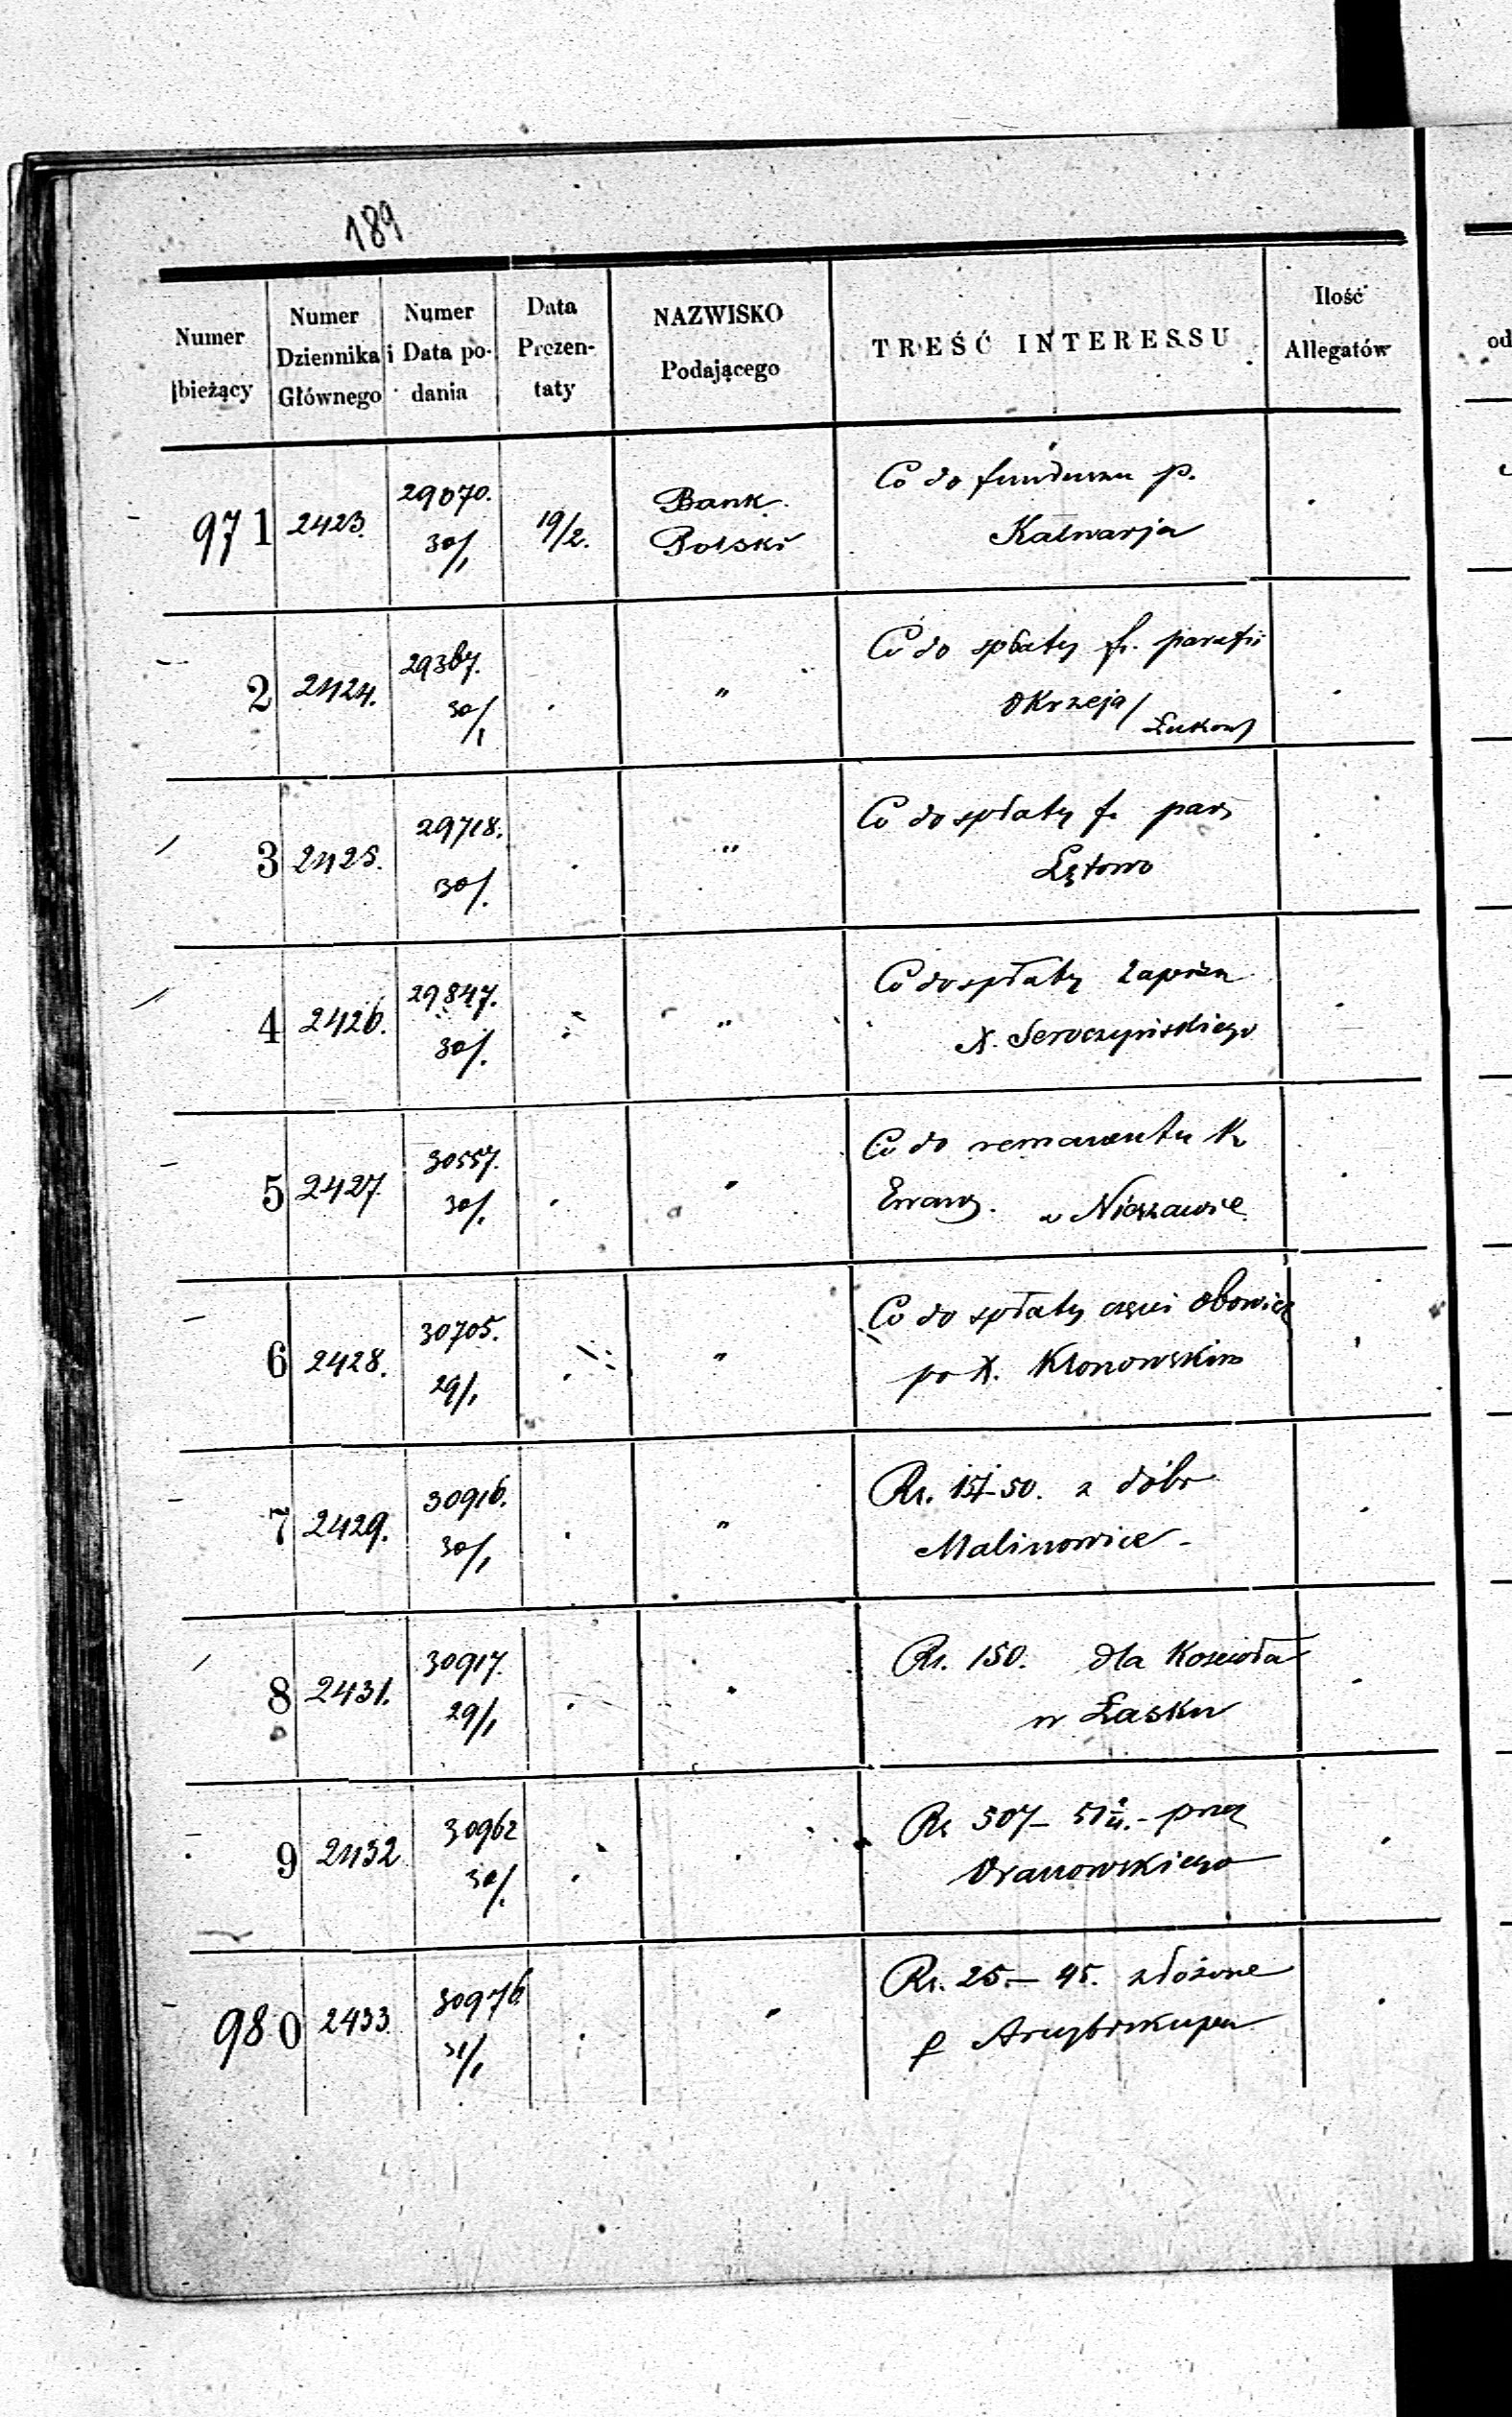 189
Numer bieżący
Numer Dziennika Głównego
Numer i Data podania
Data Prezentaty
NAZWISKO Podającego
TREŚĆ INTERESSU
Ilość Allegatów
971 2423. 29070. 30/1 19/2. Bank Polski Co do funduszu p.
Kalwarja
2 2424. 29367. 30/1 " Co do spłaty f. parafii
Okrzeja / Łukow
3 2425. 29718. 30/. " Co do spłaty f. par
Łętowo
4 2426. 29847. 30/. " Co do spłaty
X. Seroczyńskiego
5 2427. 30557. 30/. " Co do remanentu K
w Nieszawie
6 2428. 30705. 29/1 " Co do spłaty części obowiąz
po X. Klonowskim
7 2429. 30916. 30/1 " Rs. 50. z dóbr
Malinowice -
8 2431. 30917. 29/1 " Rs. 150. dla Kościoła
w Łasku
9 2432 30962 30/. Rs 507 - przez
980 2433 30976 31/1 " Rs. 25.- 45. złożone
p Arcybiskupa